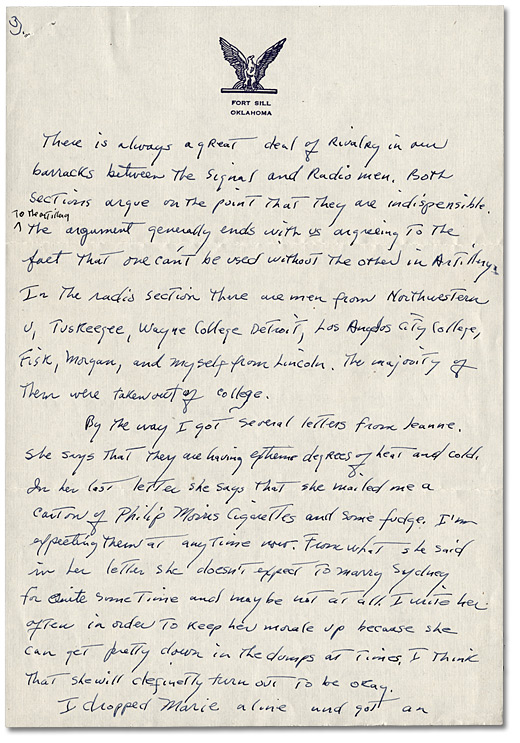 3).
FORT SILL
OKLAHOMA
There is always a great deal of Rivalry in our
barracks between the Signal and Radio men. Both
sections argue on the point that they are indispensible.
To the artillery
^ The argument generally ends with us argreeing to the
fact that one can't be used without the other in Artillery.
In the radio section there are men from Northwestern
U, Tuskeegee, Wayne College Detroit, Los Angelos City College,
Fisk, Morgan, and myself from Lincoln. The majority of
them were taken out of college.
By the way I got several letters from Jeanne.
She says that they are having extreme degrees of heat and cold.
In her last letter she says that she mailed me a
carton of Philip Morris Cigarettes and some fudge. I'm
expecting them at anytime now. From what she said
in her letter she doesn't expect to marry Sydney
for quite sometime and maybe not at all. I write her
often in order to keep her morale up because she
can get pretty down in the dumps at times. I think
that she will definetly turn out to be okay.
I dropped Marie a line and got an